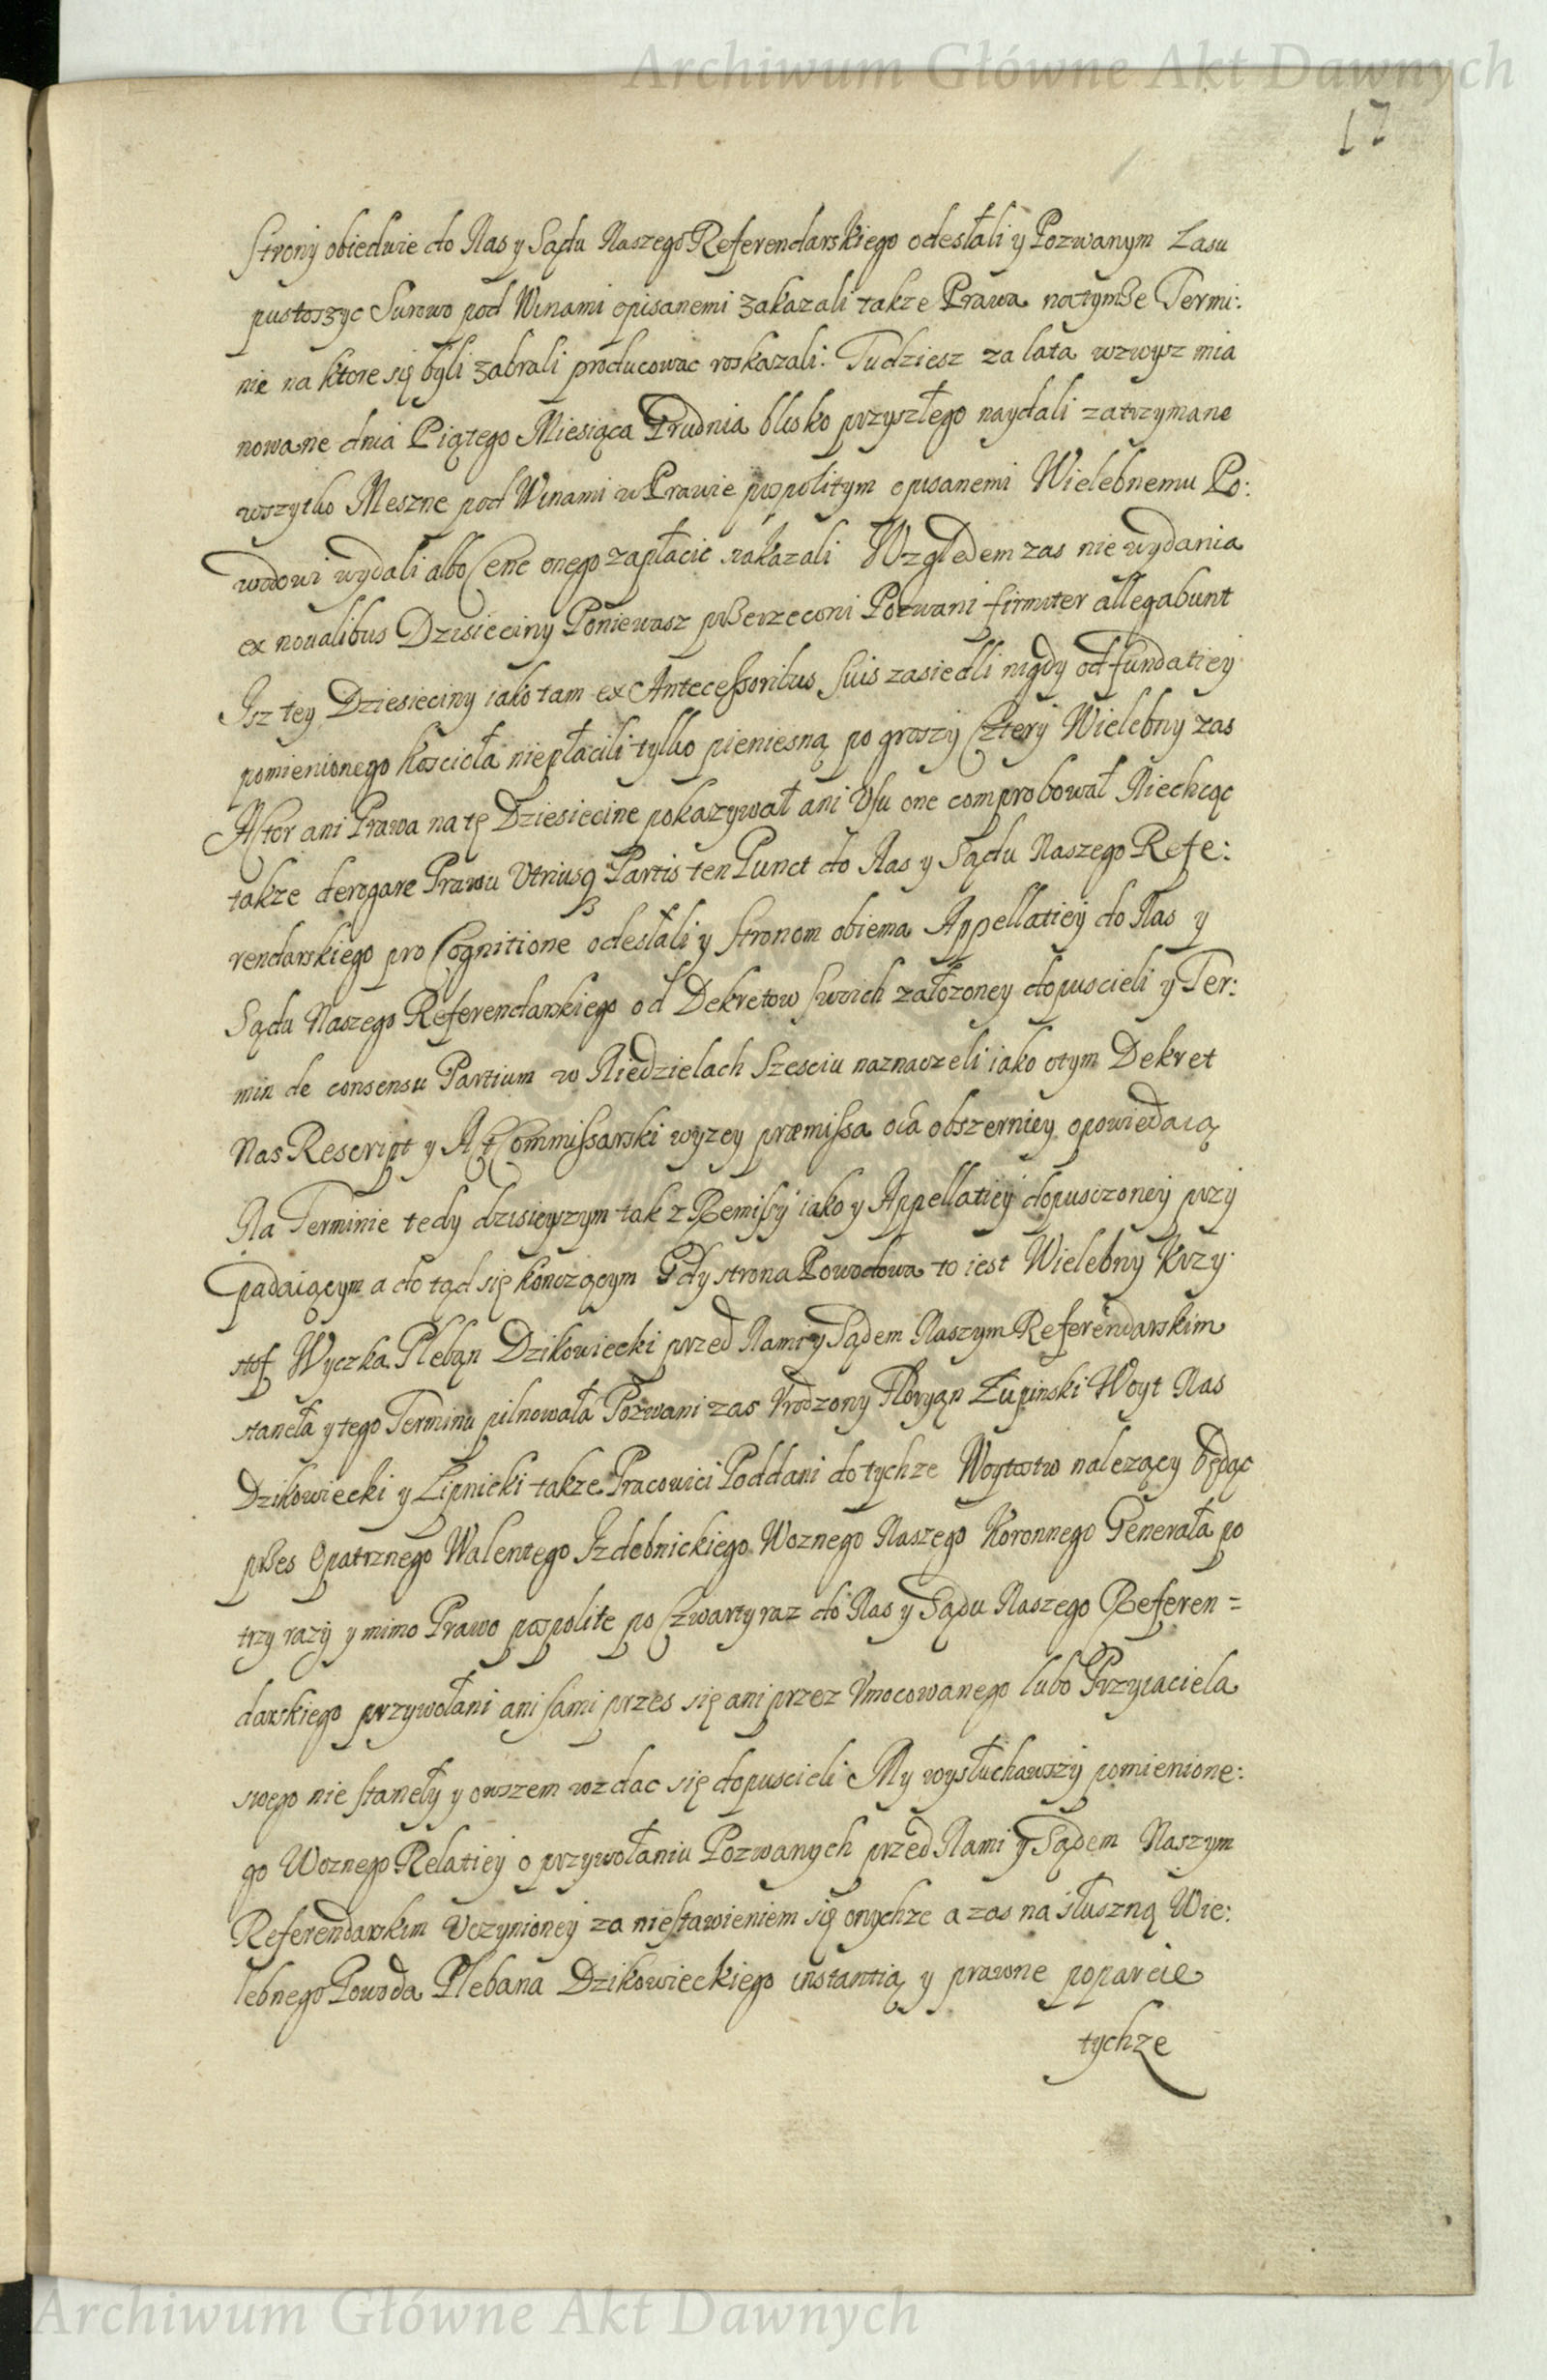 Archiwum Główne Akt Dawnych
17
Strony obiedwie do Nas y Sądu Naszego Referendarskiego odesłali y Pozwanym Lasu
pustoszyc Surowo pod Winami opisanemi zakazali takze Prawa natymze Termi:
nie na ktore się byli zabrali producowac roskazali: Tudziesz za lata wzwysz mia
nowane dnia Piątego Miesiąca Grudnia blisko przyszłego naydali zatrzymane
wszytko Meszne pod Winami w Prawie pospolitym opisanemi Wielebnemu Po:
wodowi wydali albo Cene onego zapłacic nakazali Względem zas nie wydania
ex noualibus Dziesieciny Poniewasz przerzeconi Pozwani firmiter allegabunt
Isz tey Dziesieciny iako tam ex Antecessoribus suis zasiedli nigdy od fundatiey
pomienionego Koscioła niepłacili tylko pieniesną po groszy Cztery Wielebny zas
Aktor ani Prawa na tę Dziesiecine pokazywał ani Vsu one comprobował Niechcąc
takze derogare Prawu Vtriusq Partis ten Punct do Nas y Sądu Naszego Refe:
rendarskiego pro Cognitione odesłali y Stronom obiema Appellatiey do Nas y
Sądu Naszego Referendarskiego od Dekretow swoich załozoney dopuscieli y Ter:
min de consensu Partium w Niedzielach Szesciu naznaczeli iako otym Dekret
Nas Rescript y Akt Commissarski wyzey præmissa oia obszerniey opowiedaią
Na Terminie tedy dzisieyszym tak z Remissy iako y Appellatiey dopusczoney przy
padaiącym a do tąd się konczącym Gdy strona Powodowa to iest Wielebny Krzy
stof Wyczka Pleban Dzikowiecki przed Nami y Sądem Naszym Referendarskim
staneła y tego Terminu pilnowała Pozwani zas Vrodzony Floryan Łupinski Woyt Nas
Dzikowiecki y Lipnicki takze Pracowici Poddani do tychze Woytostw nalezący będąc
przes Opatrznego Walentego Izdebnickiego Woznego Naszego Koronnego Generała po
trzy razy y mimo Prawo pospolite po Czwarty raz do Nas y Sądu Naszego Referen=
darskiego przywołani ani sami przes się ani przez Vmocowanego lubo Przyiaciela
swego nie staneły y owszem wzdac się dopuscieli My wysłuchawszy pomienione:
go Woznego Relatiey o przywołaniu Pozwanych przed Nami y Sądem Naszym
Referendarskim Vczynioney za niestawieniem się onychze a zas na słuszną Wie:
lebnego Powoda Plebana Dzikowieckiego instantią y prawne poparcie
tychze
Archiwum Główne Akt Dawnych